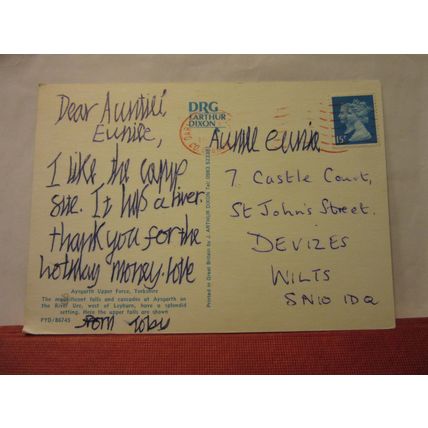 Dear Auntiei
Eunice,
I like the campe
site. It has a river.
thank you for the
holiday money. love
from Toby
Aysgarth Upper Force, Yorkshire
The magnificent falls and cascades at Aysgarth on
the River Ure, west of Leyburn, have a splendid
setting. Here the upper falls are shown
PYD/86745
DRG
J.ARTHUR
DIXON
Printed in Great Britain by J. ARTHUR DIXON Tel. 0983 523381
15
Auntie eunice
7 Castle Court,
St John's Street.
DEVIZES
WILTS
SN10 1DQ